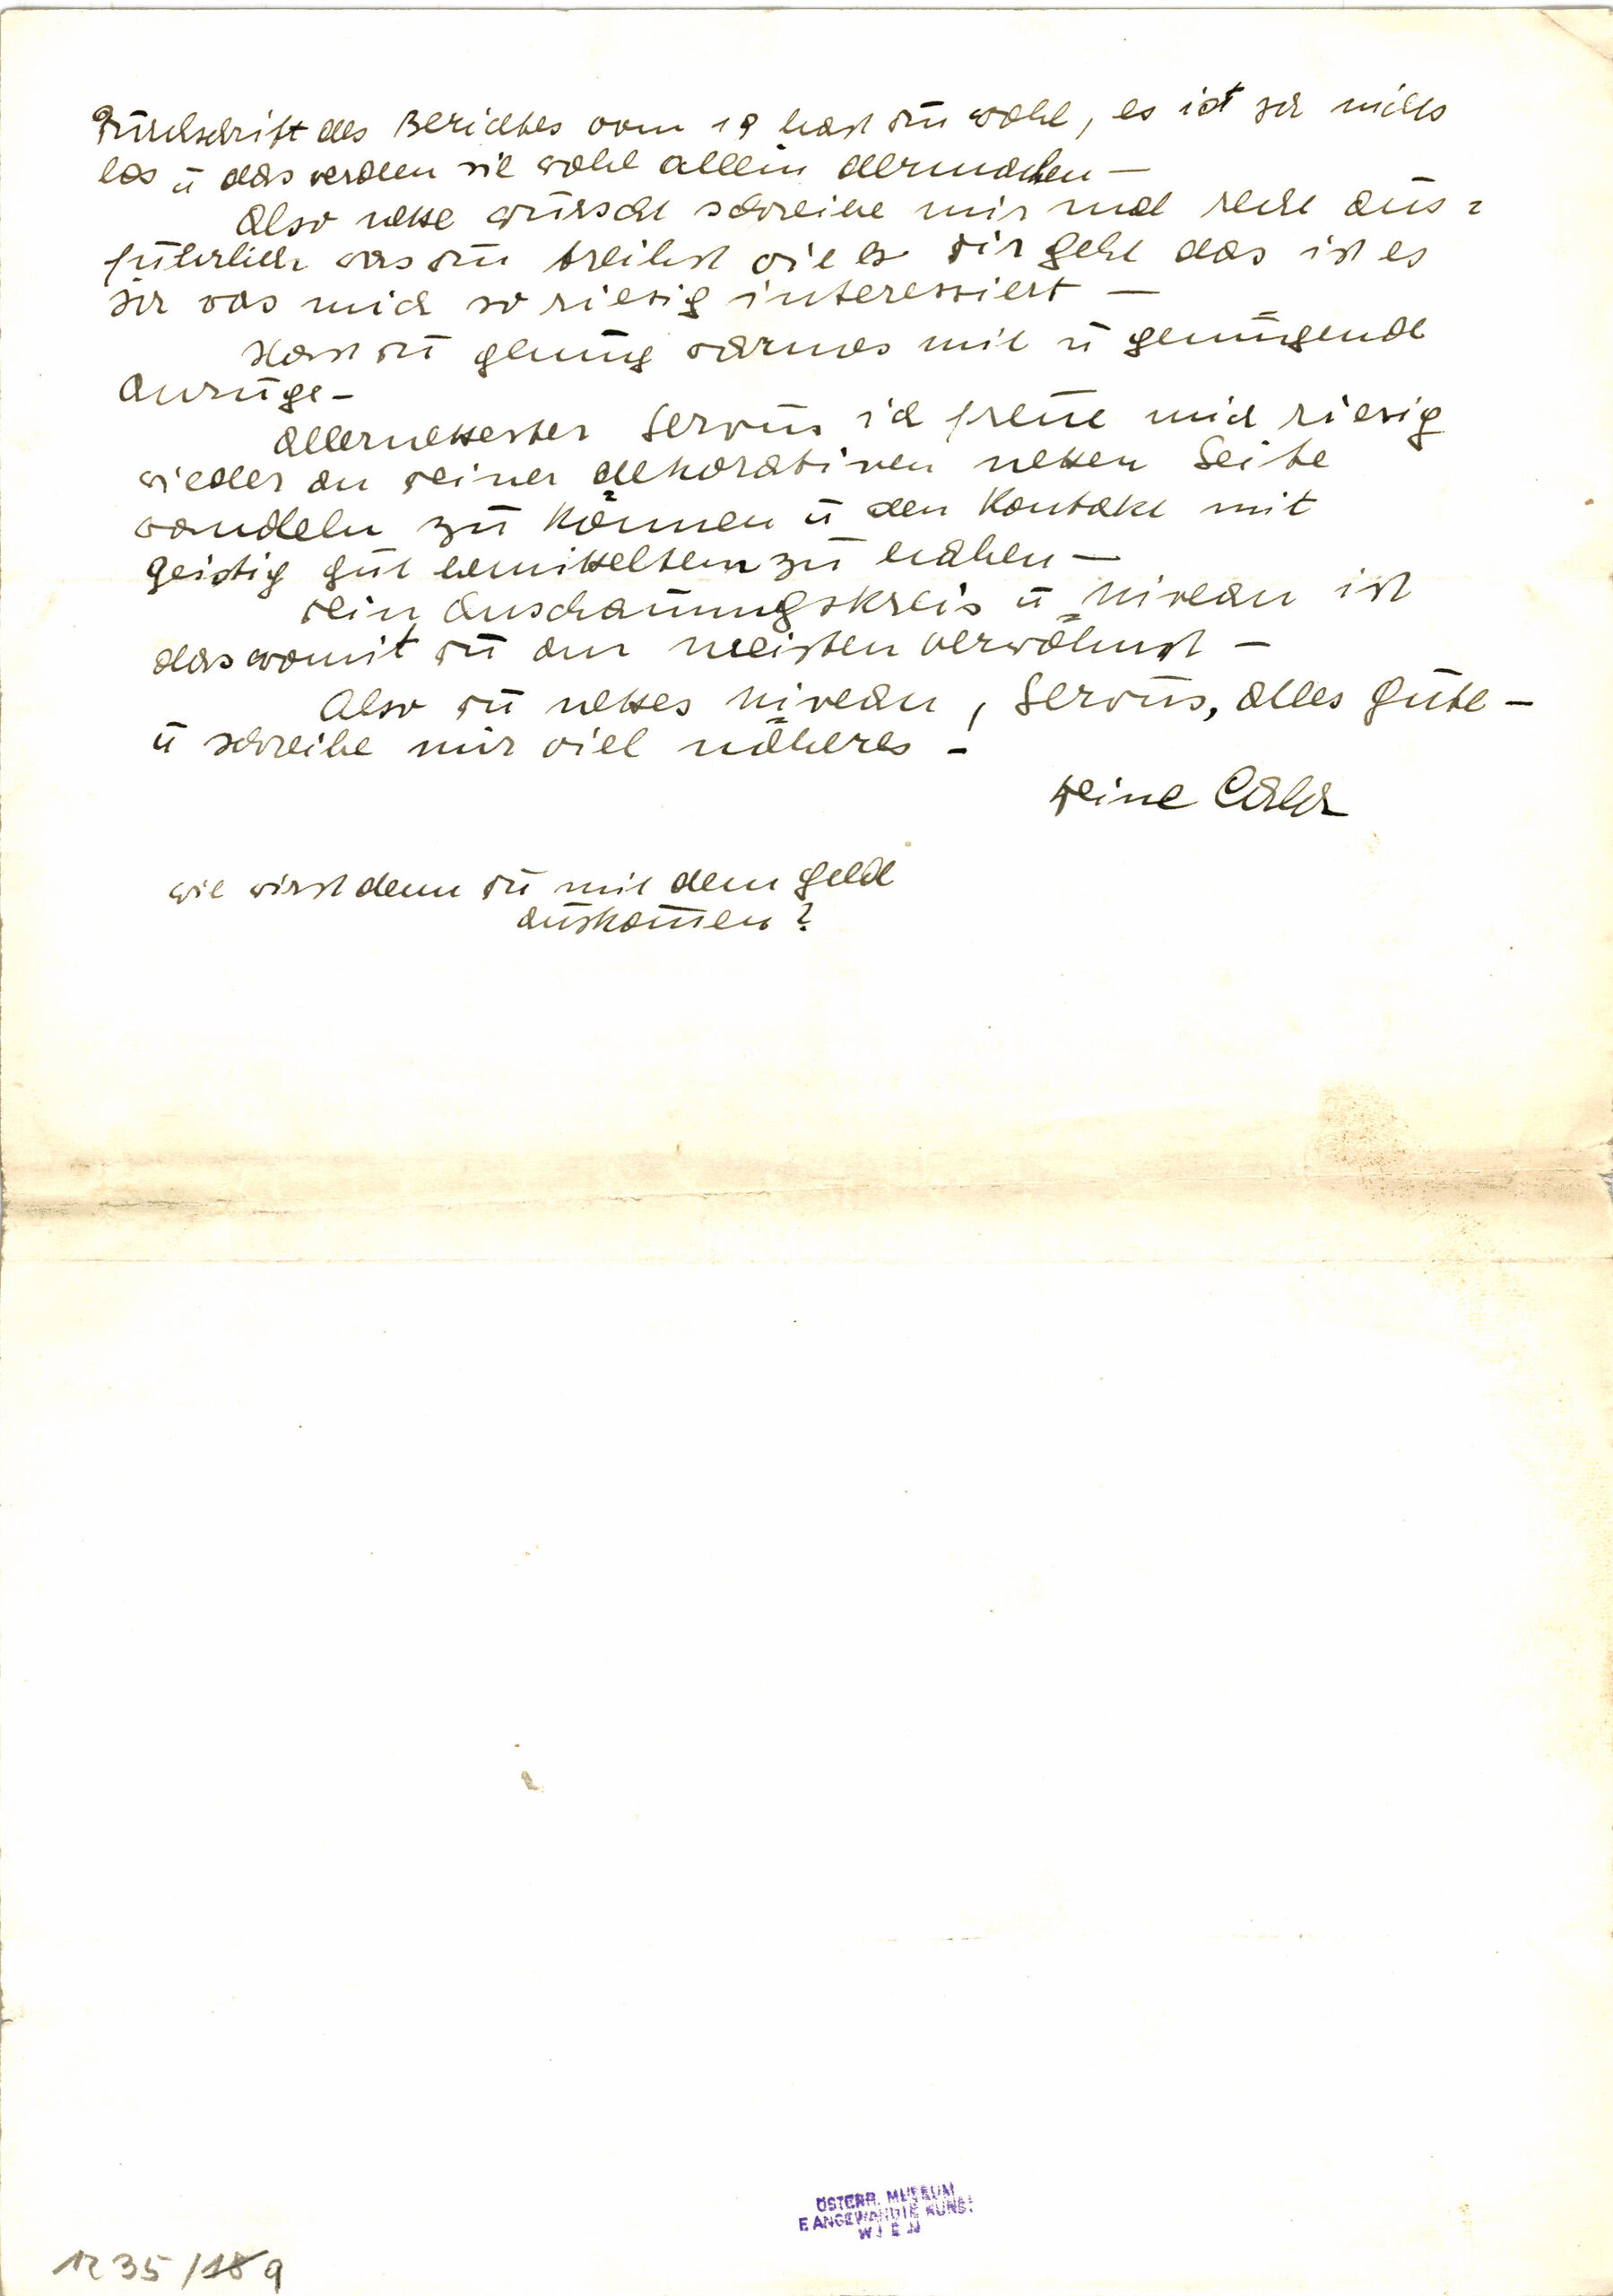 Durchschrift des Berichtes vom 19 hast du wohl, es ist ja nichts
los ū das werden sie wohl allein dermachen —
Also nette Wurscht schreibe mir mal recht aus=
führlich was dū treibst wie es dir geht das ist es
ja was mich so riesig interessiert —
Hast dū genūg warmes mit ū genügende
Anzüge —
Allernettester Servūs ich freūe mich riesig
wieder an deiner dekorativen netten Seite
wandeln zū können ū den Kontakt mit
geistig gūt bemitteltem zū haben —
Dein Anschaūungskreis ū Niveau ist
das womit dū am meisten verwöhnst —
Also dū nettes Niveau, Servūs, alles Gūte —
ū schreibe mir viel näheres —
Deine Carla
wie wirst denn dū mit dem Geld
aūskom̄en?
ÖSTERR. MUSEUM
F. ANGEWANDTE KUNST
WIEN
12 35 / 18 9